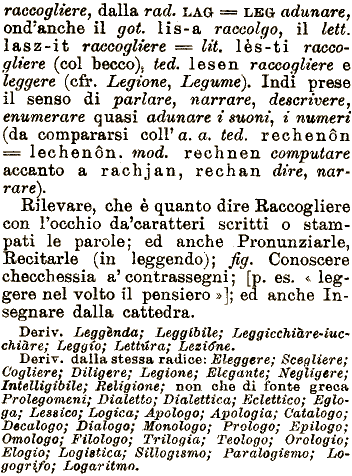 raccogliere, dalla rad. LAG = LEG adunare,
ond'anche il got. lis-a raccolgo, il lett.
lasz-it raccogliere = lit. lès-ti racco-
gliere (col becco), ted. lesen raccogliere e
leggere (cfr. Legione, Legume). Indi prese
il senso di parlare, narrare, descrivere,
enumerare quasi adunare i suoni, i numeri
(da compararsi coll' a. a. ted. rechenôn
= lechenôn. mod. rechnen computare
accanto a rachjan, rechan dire, nar-
rare).
Rilevare, che è quanto dire Raccogliere
con l'occhio da' caratteri scritti o stam-
pati le parole; ed anche Pronunziarle,
Recitarle (in leggendo); fig. Conoscere
checchessia a' contrassegni; [p. es. « leg-
gere nel volto il pensiero »]; ed anche In-
segnare dalla cattedra.
Deriv. Leggènda; Leggìbile; Leggicchiàre-iuc-
chiàre; Leggìo; Lettúra; Lezióne.
Deriv. dalla stessa radice: Eleggere; Scegliere;
Cogliere; Diligere; Legione; Elegante; Negligere;
Intelligibile; Religione; non che di fonte greca
Prolegomeni; Dialetto; Dialettica; Eclettico; Eglo-
ga; Lessico; Logica; Apologo; Apologia; Catalogo;
Decalogo; Dialogo; Monologo; Prologo; Epilogo;
Omologo; Filologo; Trilogia; Teologo; Orologio;
Elogio; Logistica; Sillogismo; Paralogismo; Lo-
gogrifo; Logaritmo.